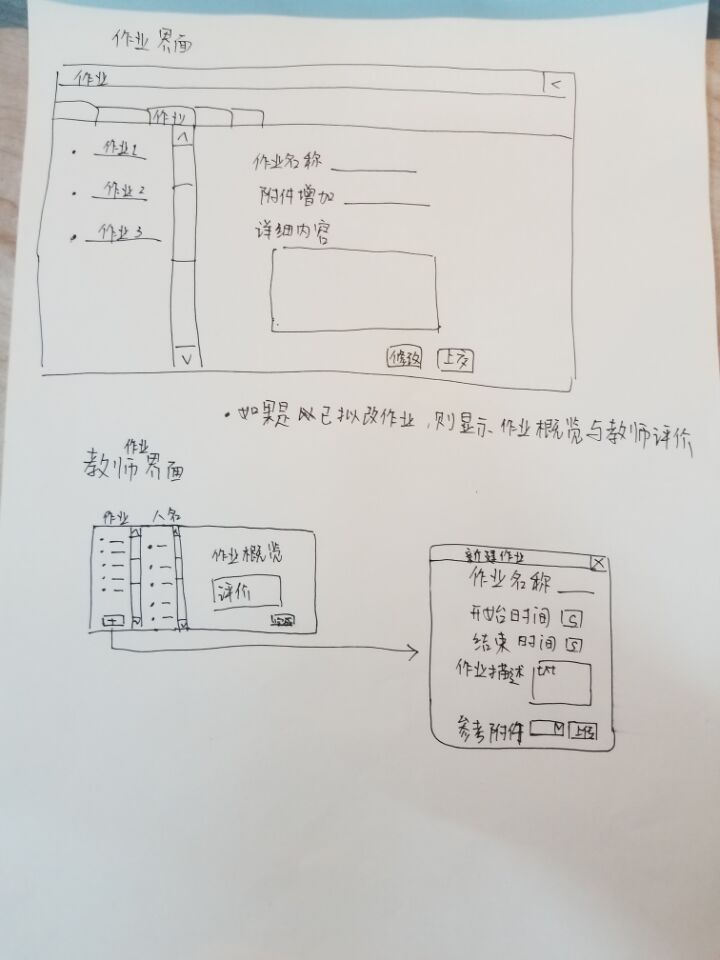 作业界面
作业 <
作业
作业1
作业2
作业3
作业名称
附件增加
详细内容
修改 上交
·如果是已拟改作业,则显示作业概览与教师评价
作业
教师界面
作业 人名
作业概览
评价
+
新建作业 X
作业名称
开始时间
结束时间
作业描述 txt
参考附件 上传